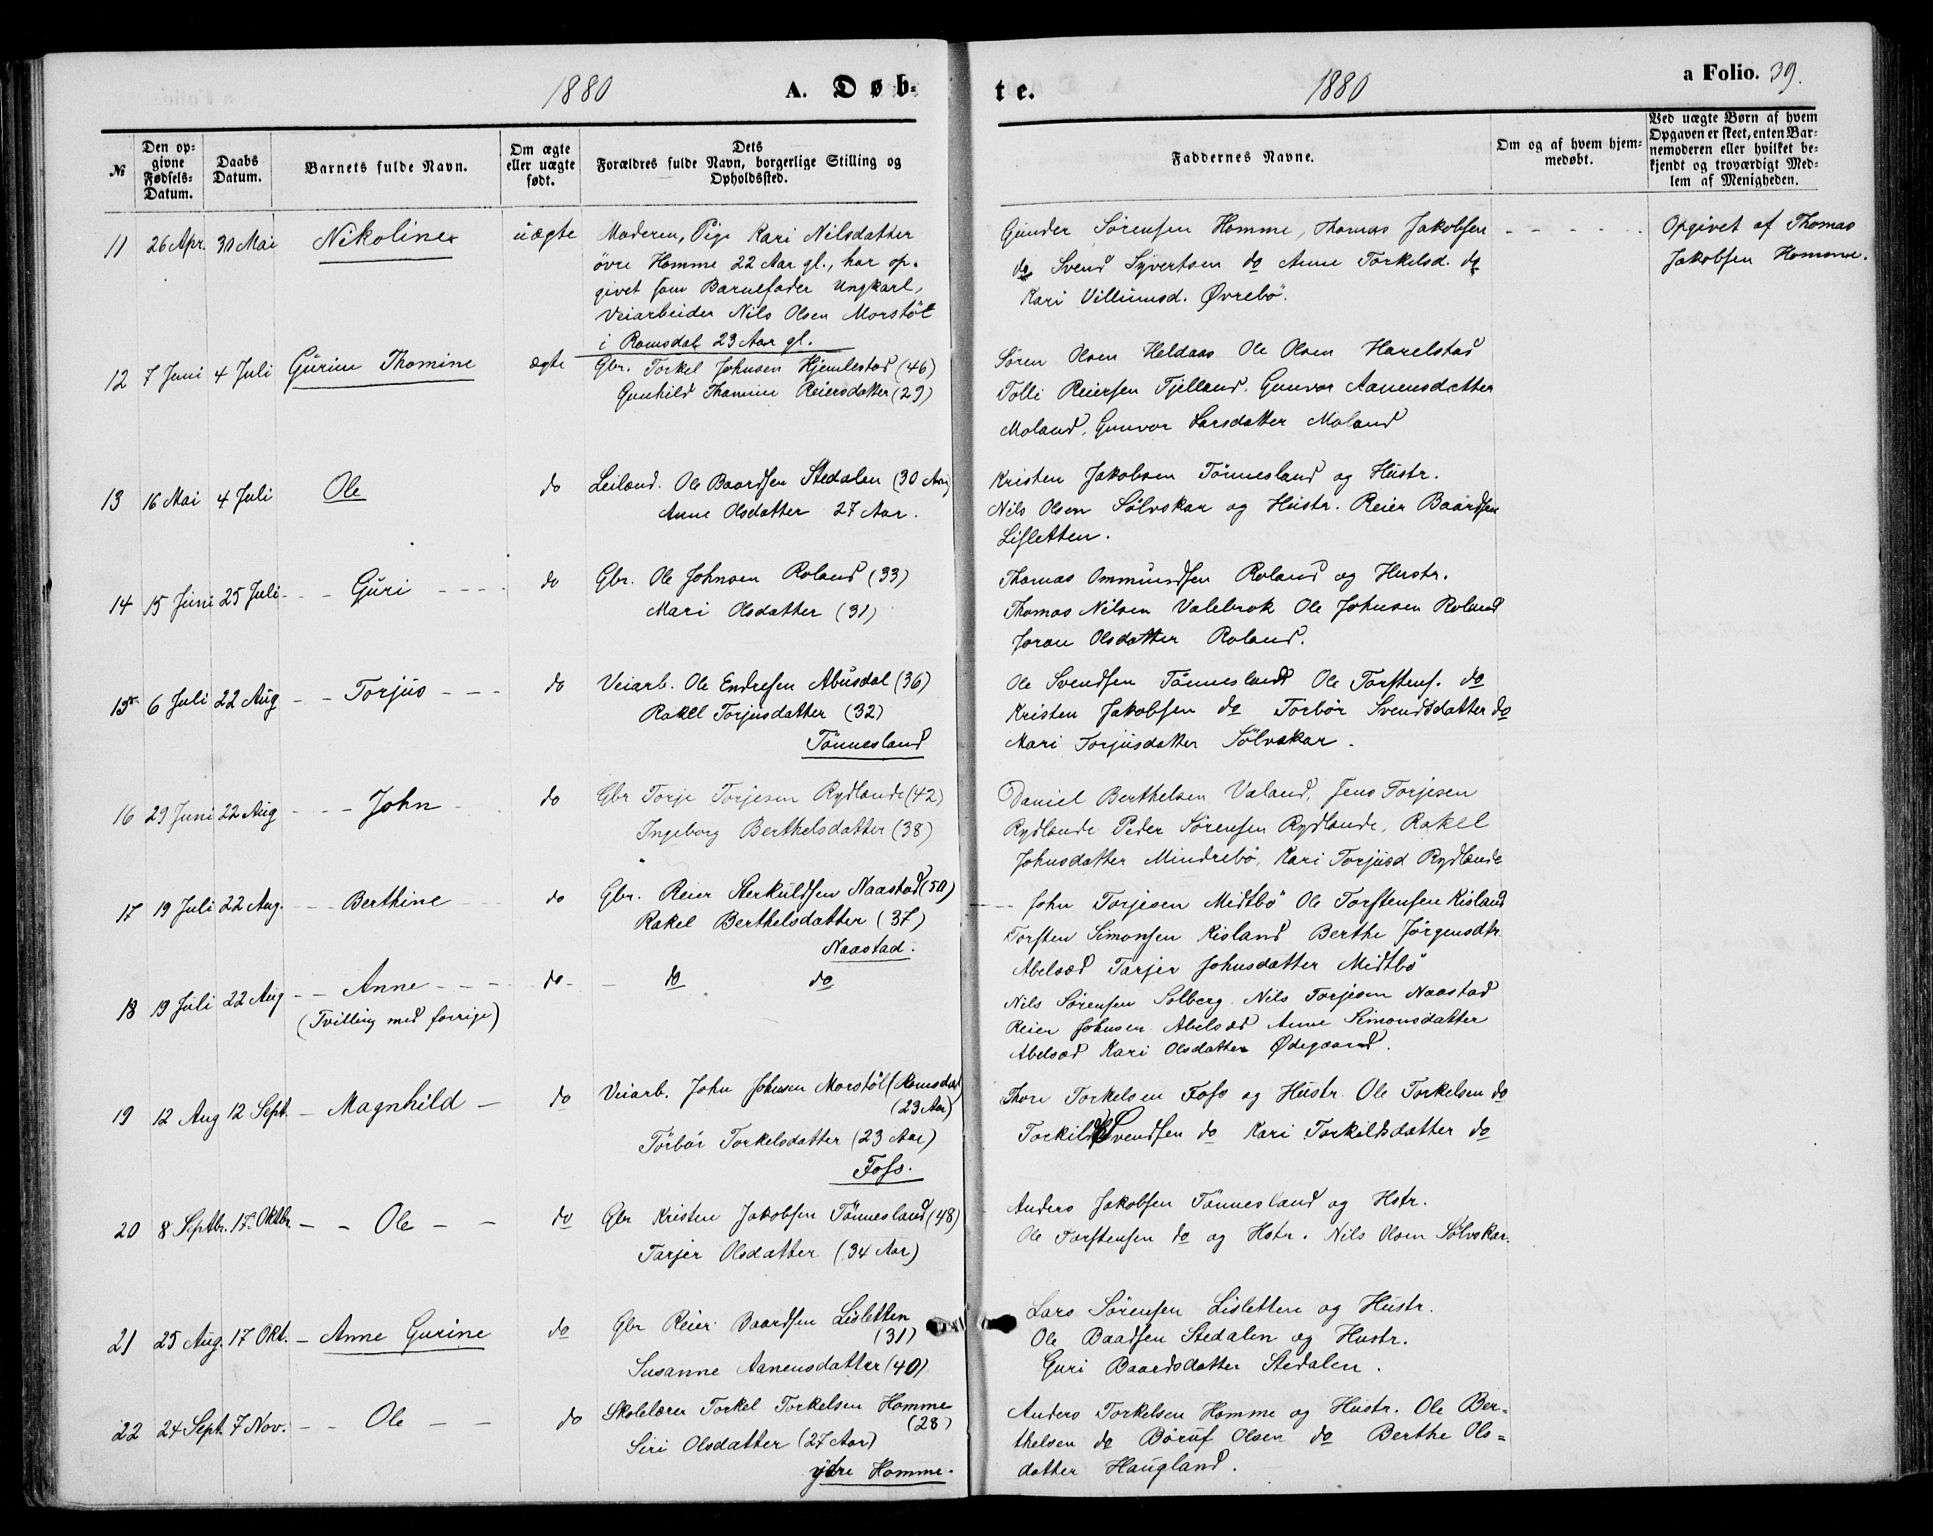 1880
A. Døb-
te.
1880
a Folio. 39.
№
Den opgivne Fødsels-Datum.
Daabs Datum.
Barnets fulde Navn.
Om ægte eller uægte født.
Dets Forældres fulde Navn, borgerlige Stilling og Opholdssted.
Faddernes Navne.
Om og af hvem hjemmedøbt.
Ved uægte Børn af hvem Opgaven er skeet, enten Barnemoderen eller hvilket bekjendt og troværdigt Medlem af Menigheden.
11 26 Apr. 30 Mai Nikoline uægte Moderen, Pige Kari Nilsdatter
øvre Homme 22 Aar gl., har op-
givet som Barnefader Ungkarl,
Veiarbeider Nils Olsen Morstøl
i Romsdal 23 Aar gl.
Gunder Sørensen Homme, Thomas Jakobsen
do Svend Syvertsen do Anne Torkelsd. do
Kari Villumsd. Øvrebö.
Opgivet af Thomas
Jakobsen Homme.
12 7 Juni 4 Juli Gurine Thomine ægte Gbr. Torkel Johnsen Hjemlestad (46)
Gunhild Thomine Reiersdatter (29)
Søren Olsen Heldaas Ole Olsen Harelstad
Tolli Reiersen Fjelland. Gunvor Aanensdatter
Moland, Gunvor Larsdatter Moland
13 16 Mai 4 Juli Ole do Leilænd. Ole Baardsen Stedalen (30 Aar)
Anne Olsdatter 27 Aar.
Kristen Jakobsen Tönnesland og Hustr.
Nils Olsen Sölvskar og Hustr. Reier Baardsen
Lisletten.
14 15 Juni 25 Juli - - Guri - - - - do Gbr. Ole Johnsen Roland (33)
Mari Olsdatter (31)
Thomas Ommundsen Roland og Hustr.
Thomas Nilsen Valebrok Ole Johnsen Roland
Joran Olsdatter Roland.
15 6 Juli 22 Aug - - Torjus - - - do Veiarb. Ole Endresen Abusdal (36)
Rakel Torjusdatter (32)
Tönnesland
Ole Svendsen Tönnesland Ole Torstens. do
Kristen Jakobsen do Torbör Svendsdatter do
Mari Torjusdatter Sölvskar.
16 29 Juni 22 Aug - - - John - do Gbr Torje Torjesen Rydlande (42)
Ingeborg Berthelsdatter (38)
Daniel Berthelsen Valand, Jens Torjesen
Rydlande Peder Sørensen Rydlande, Rakel
Johnsdatter Mindrebö, Kari Torjusd Rydlande
17 19 Juli 22 Aug. - - Berthine do Gbr. Reier Sterkuldsen Naastad (50)
Rakel Berthelsdatter (37)
Naastad.
John Torjesen Midtbö Ole Torstensen Risland
Torsten Simonsen Risland Berthe Jörgensdtr
Abelsæd Tarjer Johnsdatter Midtbö
18 19 Juli 22 Aug - - Anne - - - do - - do do
(Tvilling med forrige)
Nils Sørensen Solberg. Nils Torjesen Naastad
Reier Johnsen Abelsæd Anne Simonsdatter
Abelsæd Kari Olsdatter Ødegaard.
19 12 Aug 12 Sept. - Magnhild - do Veiarb. John Johnsen Morstöl (Romsdal
(23 Aar)
Törbör Torkelsdatter (23 Aar)
Foss.
Thore Torkelsen Foss og Hustr. Ole Torkelsen do
Torkild Svendsen do Kari Torkildsdatter do
20 8 Septbr. 17 Oktbr - - Ole - - do Gbr Kristen Jakobsen Tönnesland (48)
Tarjer Olsdatter (34 Aar)
Anders Jakobsen Tönnesland og Hstr.
Ole Torstensen do og Hstr. Nils Olsen Sölvskar.
21 25 Aug. 17 Okt. - Anne Gurine do Gbr Reier Baardsen Lisletten
(31)
Susanne Aanensdatter (40)
Lars Sørensen Lisletten og Hustr.
Ole Baadsen Stedalen og Hustr.
Guri Baardsdatter Stedalen.
22 24 Sept. 7 Nov. - - Ole - - do Skolelærer Torkel Torkelsen Homme
(28)
Siri Olsdatter (27 Aar)
ydre Homme.
Anders Torkelsen Homme og Hustr. Ole Ber-
thelsen do Böruf Olsen do Berthe Ols-
datter Haugland.